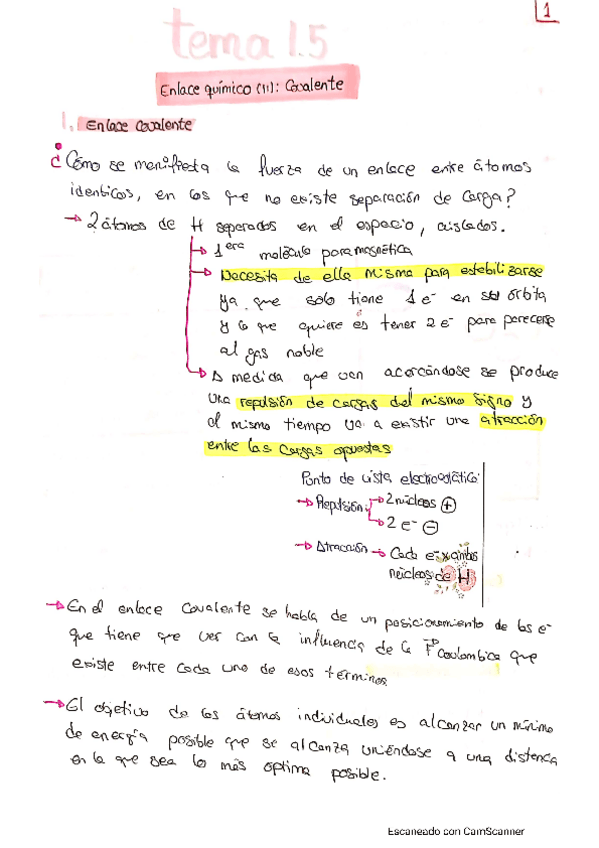 1
tema 1.5
Enlace químico (II): Covalente
1. Enlace Covalente
¿Cómo se manifiesta la fuerza de un enlace entre átomos
identicos, en los que no existe separación de carga?
→ 2 átomos de H separados en el espacio, aislados.
→ 1era molécula paramagnética
→ Necesita de ella misma para estabilizarse
ya que solo tiene 1 e⁻ en su órbita
y lo que quiere es tener 2 e⁻ para parecerse
al gas noble
→ A medida que van acercándose se produce
una repulsión de cargas del mismo signo y
al mismo tiempo va a existir una atracción
entre las cargas opuestas
Punto de vista electrostático:
→ Repulsión → 2 núcleos +
→ 2 e⁻ −
→ Atracción → Cada e⁻ x ambos
núcleos de H
→ En el enlace covalente se habla de un posicionamiento de los e⁻
que tiene que ver con la influencia de la Coulombica que
existe entre cada uno de esos términos
→ El objetivo de los átomos individuales es alcanzar un mínimo
de energía posible que se alcanza uniéndose a una distancia
en la que sea lo más optima posible.
Escaneado con CamScanner